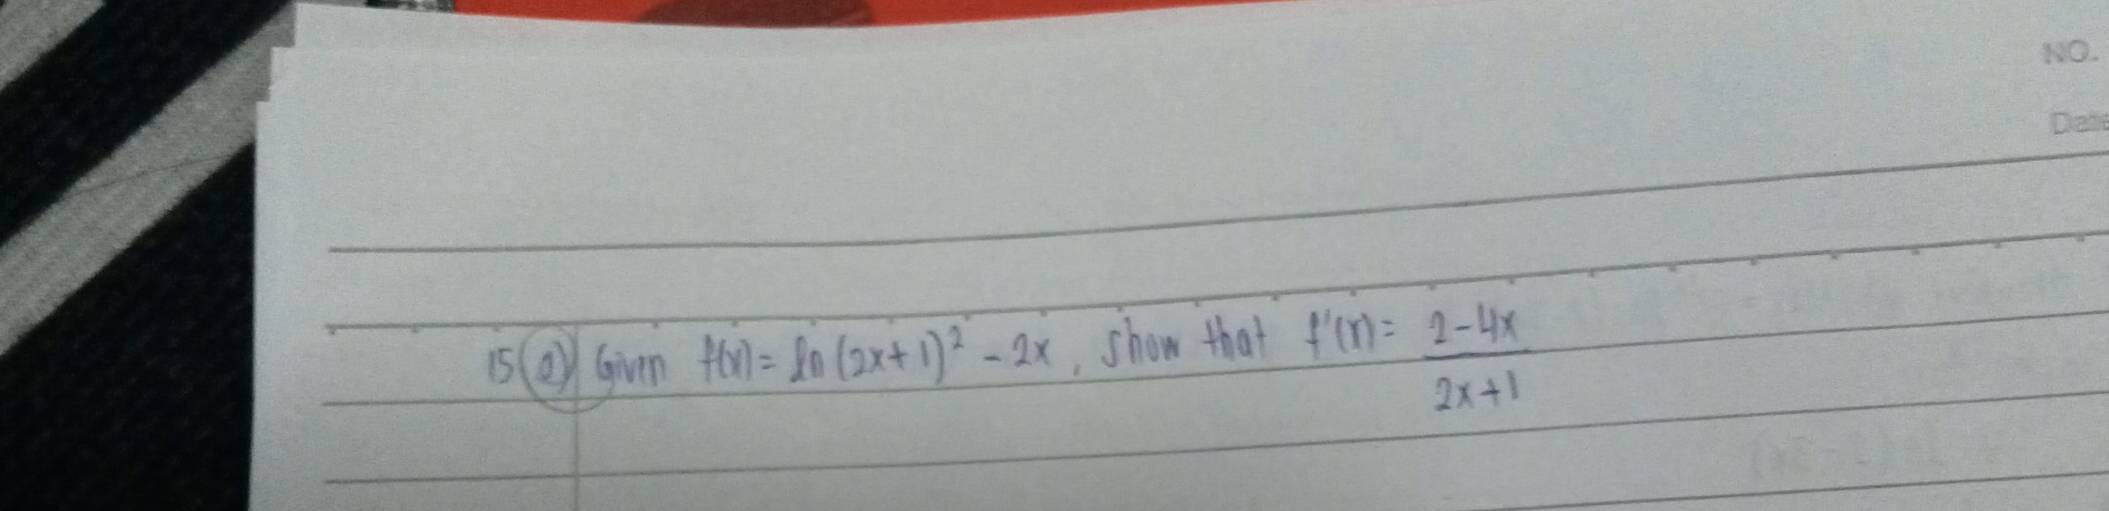 NO.
Date
15 (a) Given f(x) = ln (2x+1)² - 2x, show that f'(x) = 2-4x
2x+1